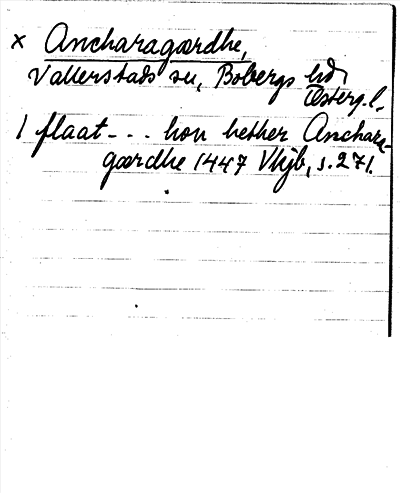 x Ancharagærdhe,
Vallerstads sn, Bobergs hd,
Österg. l.
1 flaat - - . hon hether Anchara-
gærdhe 1447 Vkjb, s. 271.